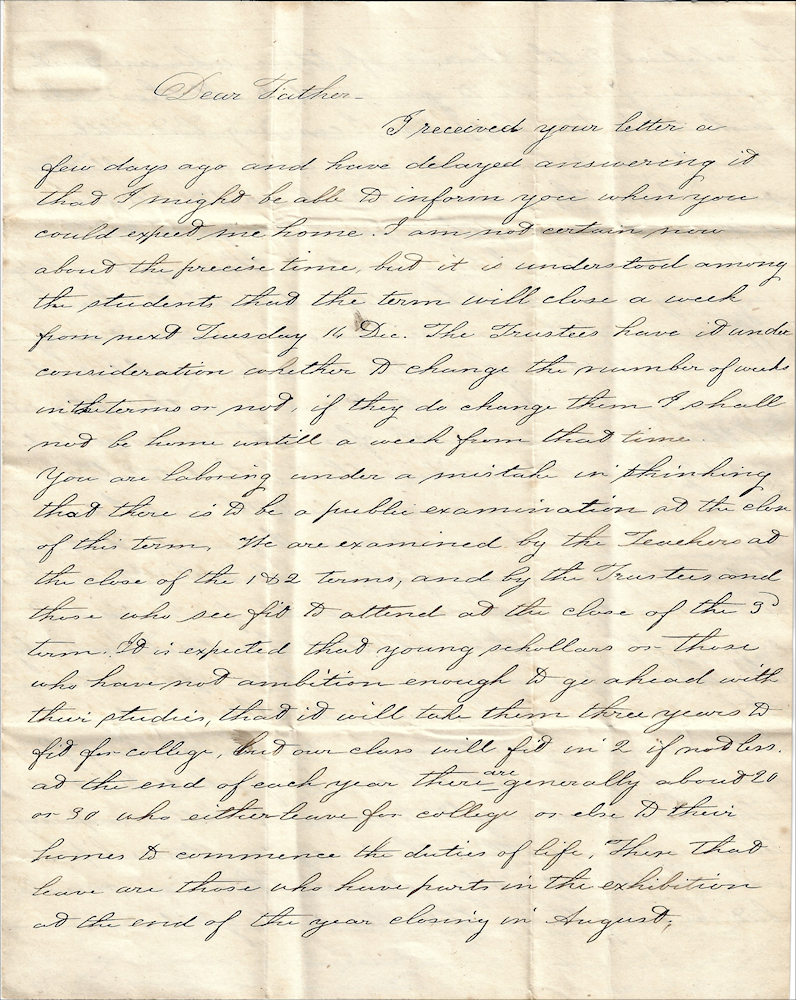 Dear Father-
I received your letter a
few days ago and have delayed answering it
that I might be able to inform you when you
could expect me home. I am not certain now
about the precise time, but it is understood among
the students that the term will close a week
from next Tuesday 14 Dec. The Trustees have it under
consideration whether to change the number of weeks
in the terms or not, if they do change them I shall
not be home untill a week from that time.
You are laboring under a mistake in thinking
that there is to be a public examination at the close
of this term. We are examined by the Teachers at
the close of the 1 & 2 terms, and by the Trustees and
those who see fit to attend at the close of the 3d
term. It is expected that young schollars or those
who have not ambition enough to go ahead with
their studies, that it will take them three years to
fit for college, but our class will fit in 2 if not less.
at the end of each year there are generally about 20
or 30 who either leave for college or else to their
homes to commence the duties of life. These that
leave are those who have parts in the exhibition
at the end of the year closing in August,